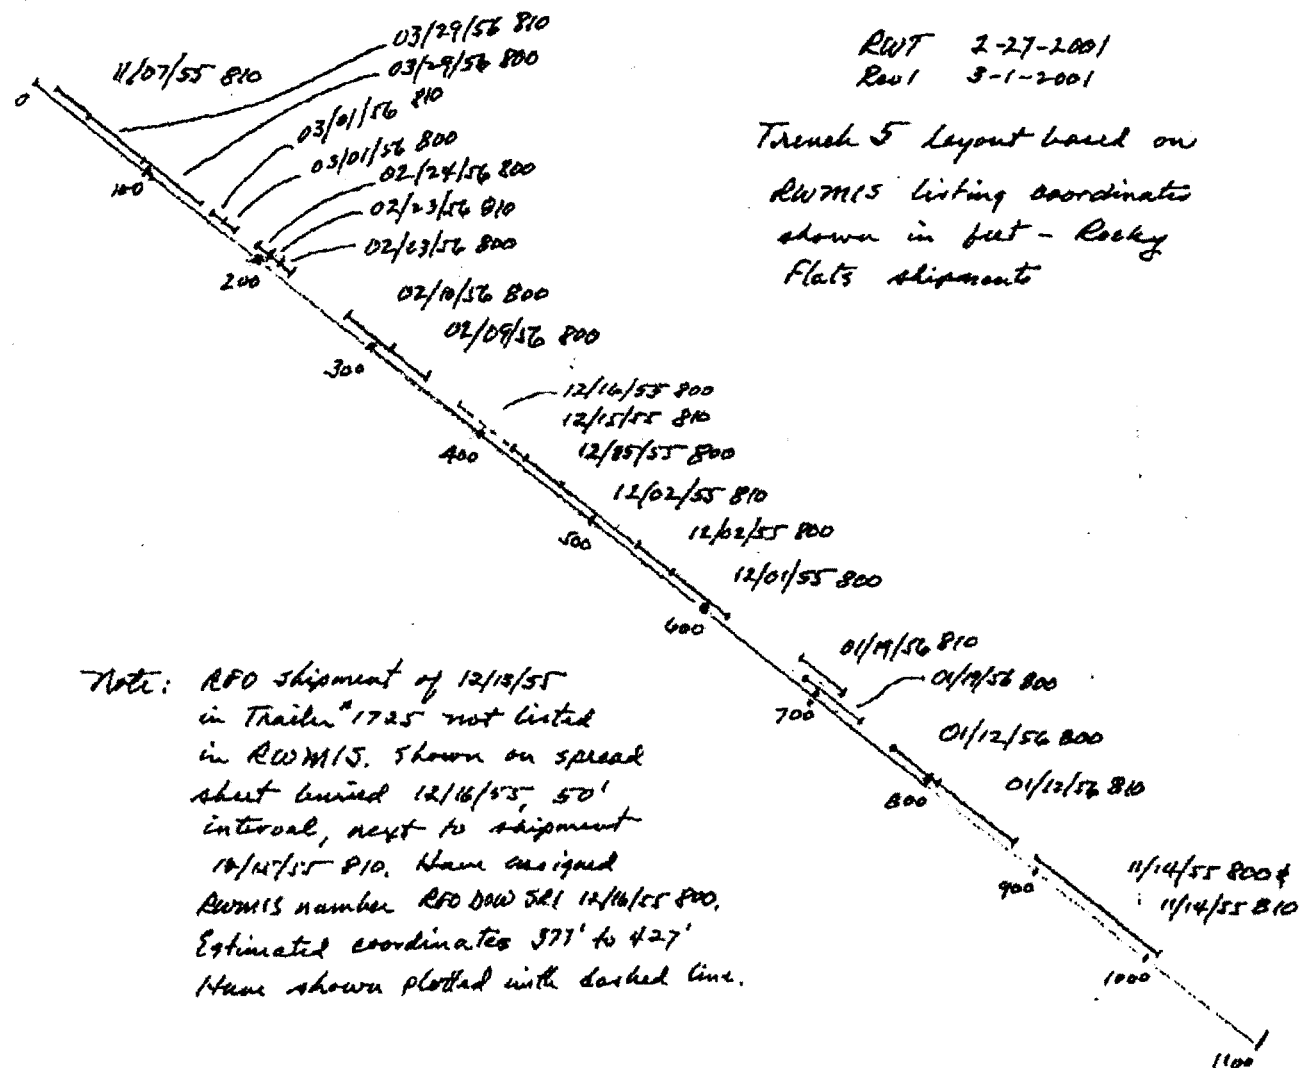 RWT 2-27-2001
Rev1 3-1-2001
Trench 5 layout based on
RWMIS listing coordinates
shown in feet - Rocky
Flats shipments
03/29/56 810
03/29/56 800
11/07/55 810
03/01/56 810
03/01/56 800
02/24/56 800
02/23/56 810
02/23/56 800
02/10/56 800
02/09/56 800
12/16/55 800
12/15/55 810
12/05/55 800
12/02/55 810
12/02/55 800
12/01/55 800
01/19/56 810
01/19/56 800
01/12/56 800
01/12/56 810
11/14/55 800 &
11/14/55 810
0
100
200
300
400
500
600
700
800
900
1000
1100
Note: RFO shipment of 12/13/55
in Trailer #1725 not listed
in RWMIS. Shown on spread
sheet buried 12/16/55, 50'
interval, next to shipment
12/15/55 810. Have assigned
RWMIS number RFO DOW SR1 12/16/55 800.
Estimated coordinates 377' to 427'
Have shown plotted with dashed line.